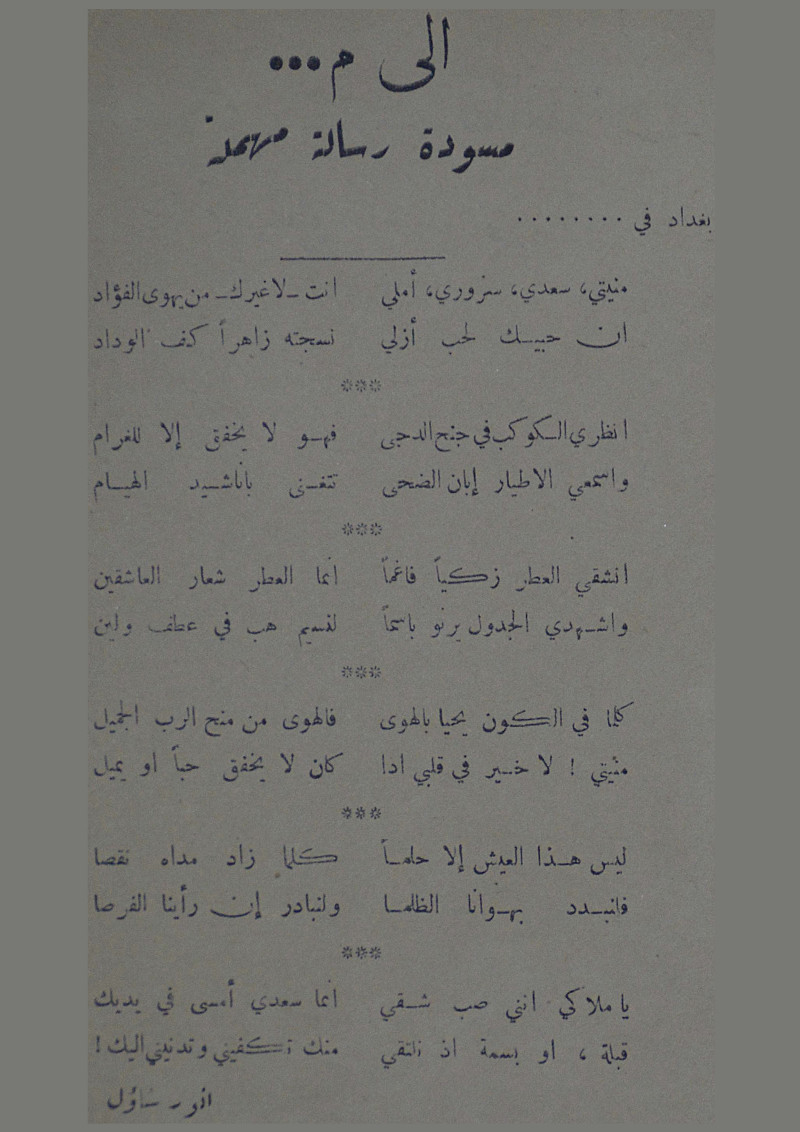 الى م...
مسودة رسالة مهملة
بغداد في ........
منيتي، سعدي، سروري، أملي    انت ـ لا غيرك ـ من يهوى الفؤاد
ان حبيـك لحب أزلي    نسجته زاهراً كف الوداد
***
انظري الكوكب في جنح الدجى    فهو لا يخفق إلا للغرام
واسمعي الاطيار إبان الضحى    تتغنى باناشيد الهيام
***
انشقي العطر زكياً فاغماً    انما العطر شعار العاشقين
واشهدي الجدول يرنو باسماً    لنسيم هب في عطف ولين
***
كلما في الكون يحيا بالهوى    فالهوى من منح الرب الجميل
منيتي ! لا خير في قلبي اذا    كان لا يخفق حباً او يميل
***
ليس هذا العيش إلا حلماً    كلما زاد مداه نقصا
فلنبدد بهوانا الظلما    ولنبادر إن رأينا الفرصا
***
يا ملاكي انني صب شقي    انما سعدي أمسى في يديك
قبلة ، او بسمة اذ نلتقي    منك تكفيني وتدنيني اليك !
انور شاؤل